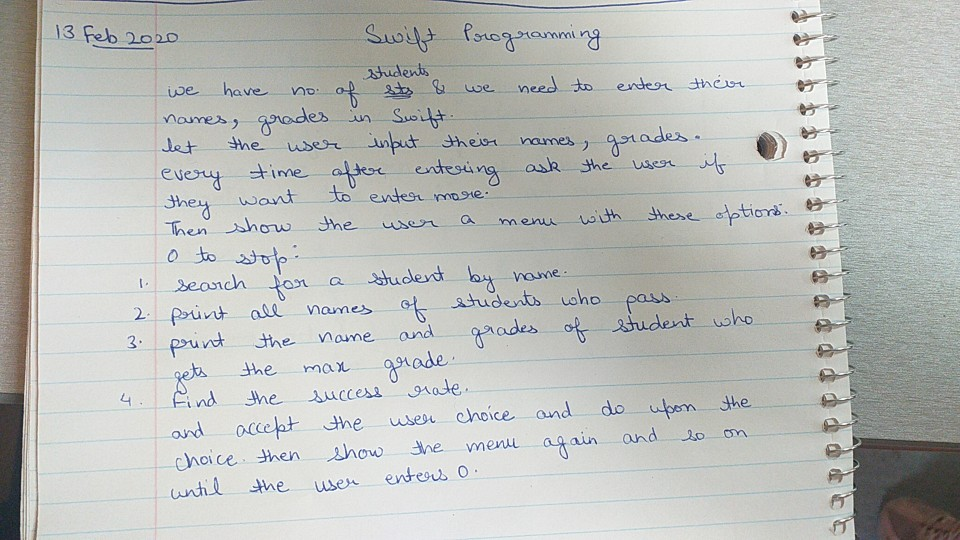 13 Feb 2020 Swift Programming
students
we have no. of sts & we need to enter their
names, grades in Swift.
let the user input their names, grades.
every time after entering ask the user if
they want to enter more.
Then show the user a menu with these options:
0 to stop:
1. search for a student by name.
2. print all names of students who pass.
3. print the name and grades of student who
gets the max grade.
4. Find the success rate.
and accept the user choice and do upon the
choice. then show the menu again and so on
until the user enters 0.